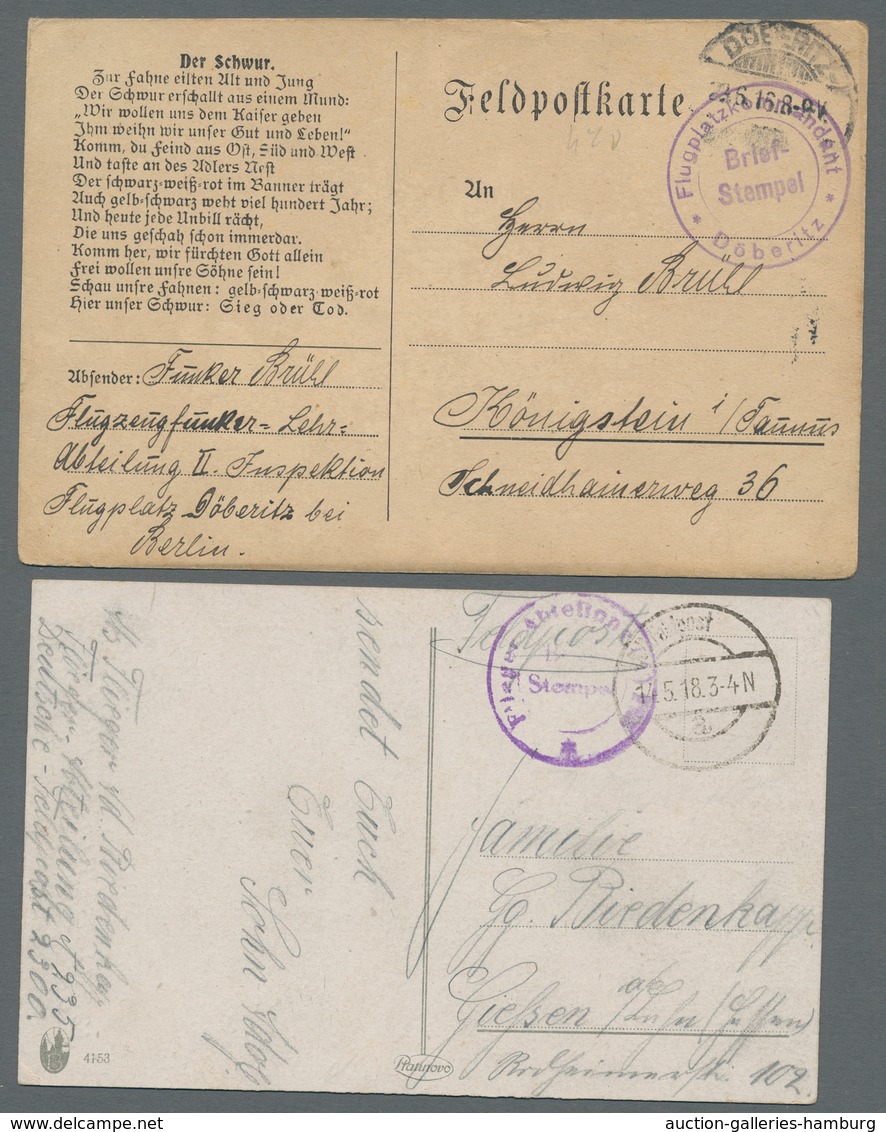 Der Schwur.
Zur Fahne eilten Alt und Jung
Der Schwur erschallt aus einem Mund:
„Wir wollen uns dem Kaiser geben
Ihm weihn wir unser Gut und Leben!“
Komm, du Feind aus Ost, Süd und West
Und taste an des Adlers Nest
Der schwarz-weiß-rot im Banner trägt
Auch gelb-schwarz weht viel hundert Jahr;
Und heute jede Unbill rächt,
Die uns geschah schon immerdar.
Komm her, wir fürchten Gott allein
Frei wollen unsre Söhne sein!
Schau unsre Fahnen: gelb-schwarz-weiß-rot
Hier unser Schwur: Sieg oder Tod.
Absender: Funker Brühl
Flugzeugfunker-Lehr-
Abteilung II. Inspektion
Flugplatz Döberitz bei
Berlin.
Feldpostkarte
8-9V
Flugplatzkommandant
Brief-
Stempel
* Döberitz *
An
Herrn
Ludwig Brühl
Königstein i/Taunus
Schneidhainerweg 36
Flieger
Deutsche-Feldpost
sendet Euch
Euer
Sohn
41-53
Feldpost
Stempel
14.5.18.3-4N
a
Familie
Gg. Biedenkapp
Giessen a/Lahn (Hessen)
Rodheimerstr. 102.
Hannovo
auction-galleries-hamburg